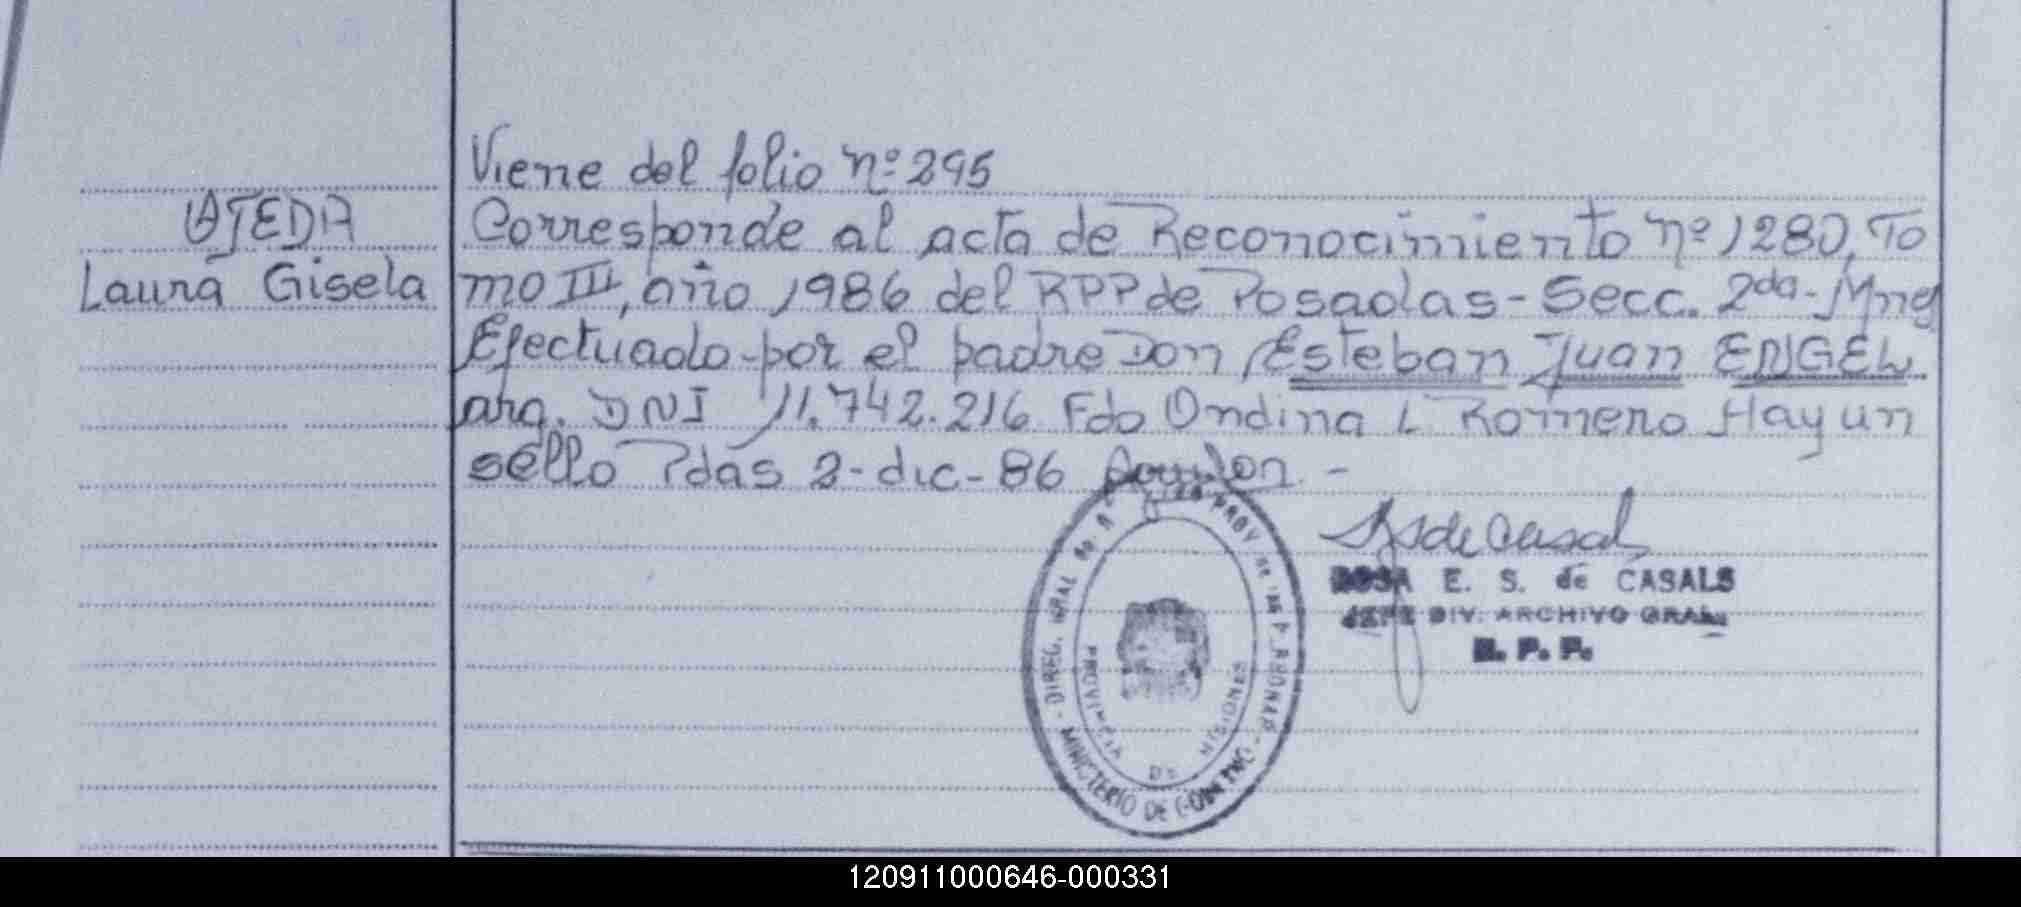 Viene del folio nº 295
OJEDA
Laura Gisela
Corresponde al acta de Reconocimiento nº 1280, To
mo III, año 1986 del RPP de Posadas - Secc. 2da - Mnes
Efectuado por el padre Don Esteban Juan ENGEL
arg. DNI 11.742.216 Fdo Ondina L Romero Hay un
sello Pdas 2-dic-86
ROSA E. S. de CASALS
JEFE DIV. ARCHIVO GRAL.
R. P. P.
DIREC. GRAL PROV. DE LAS PERSONAS
MINISTERIO DE GOBIERNO
PROVINCIA DE MISIONES
120911000646-000331